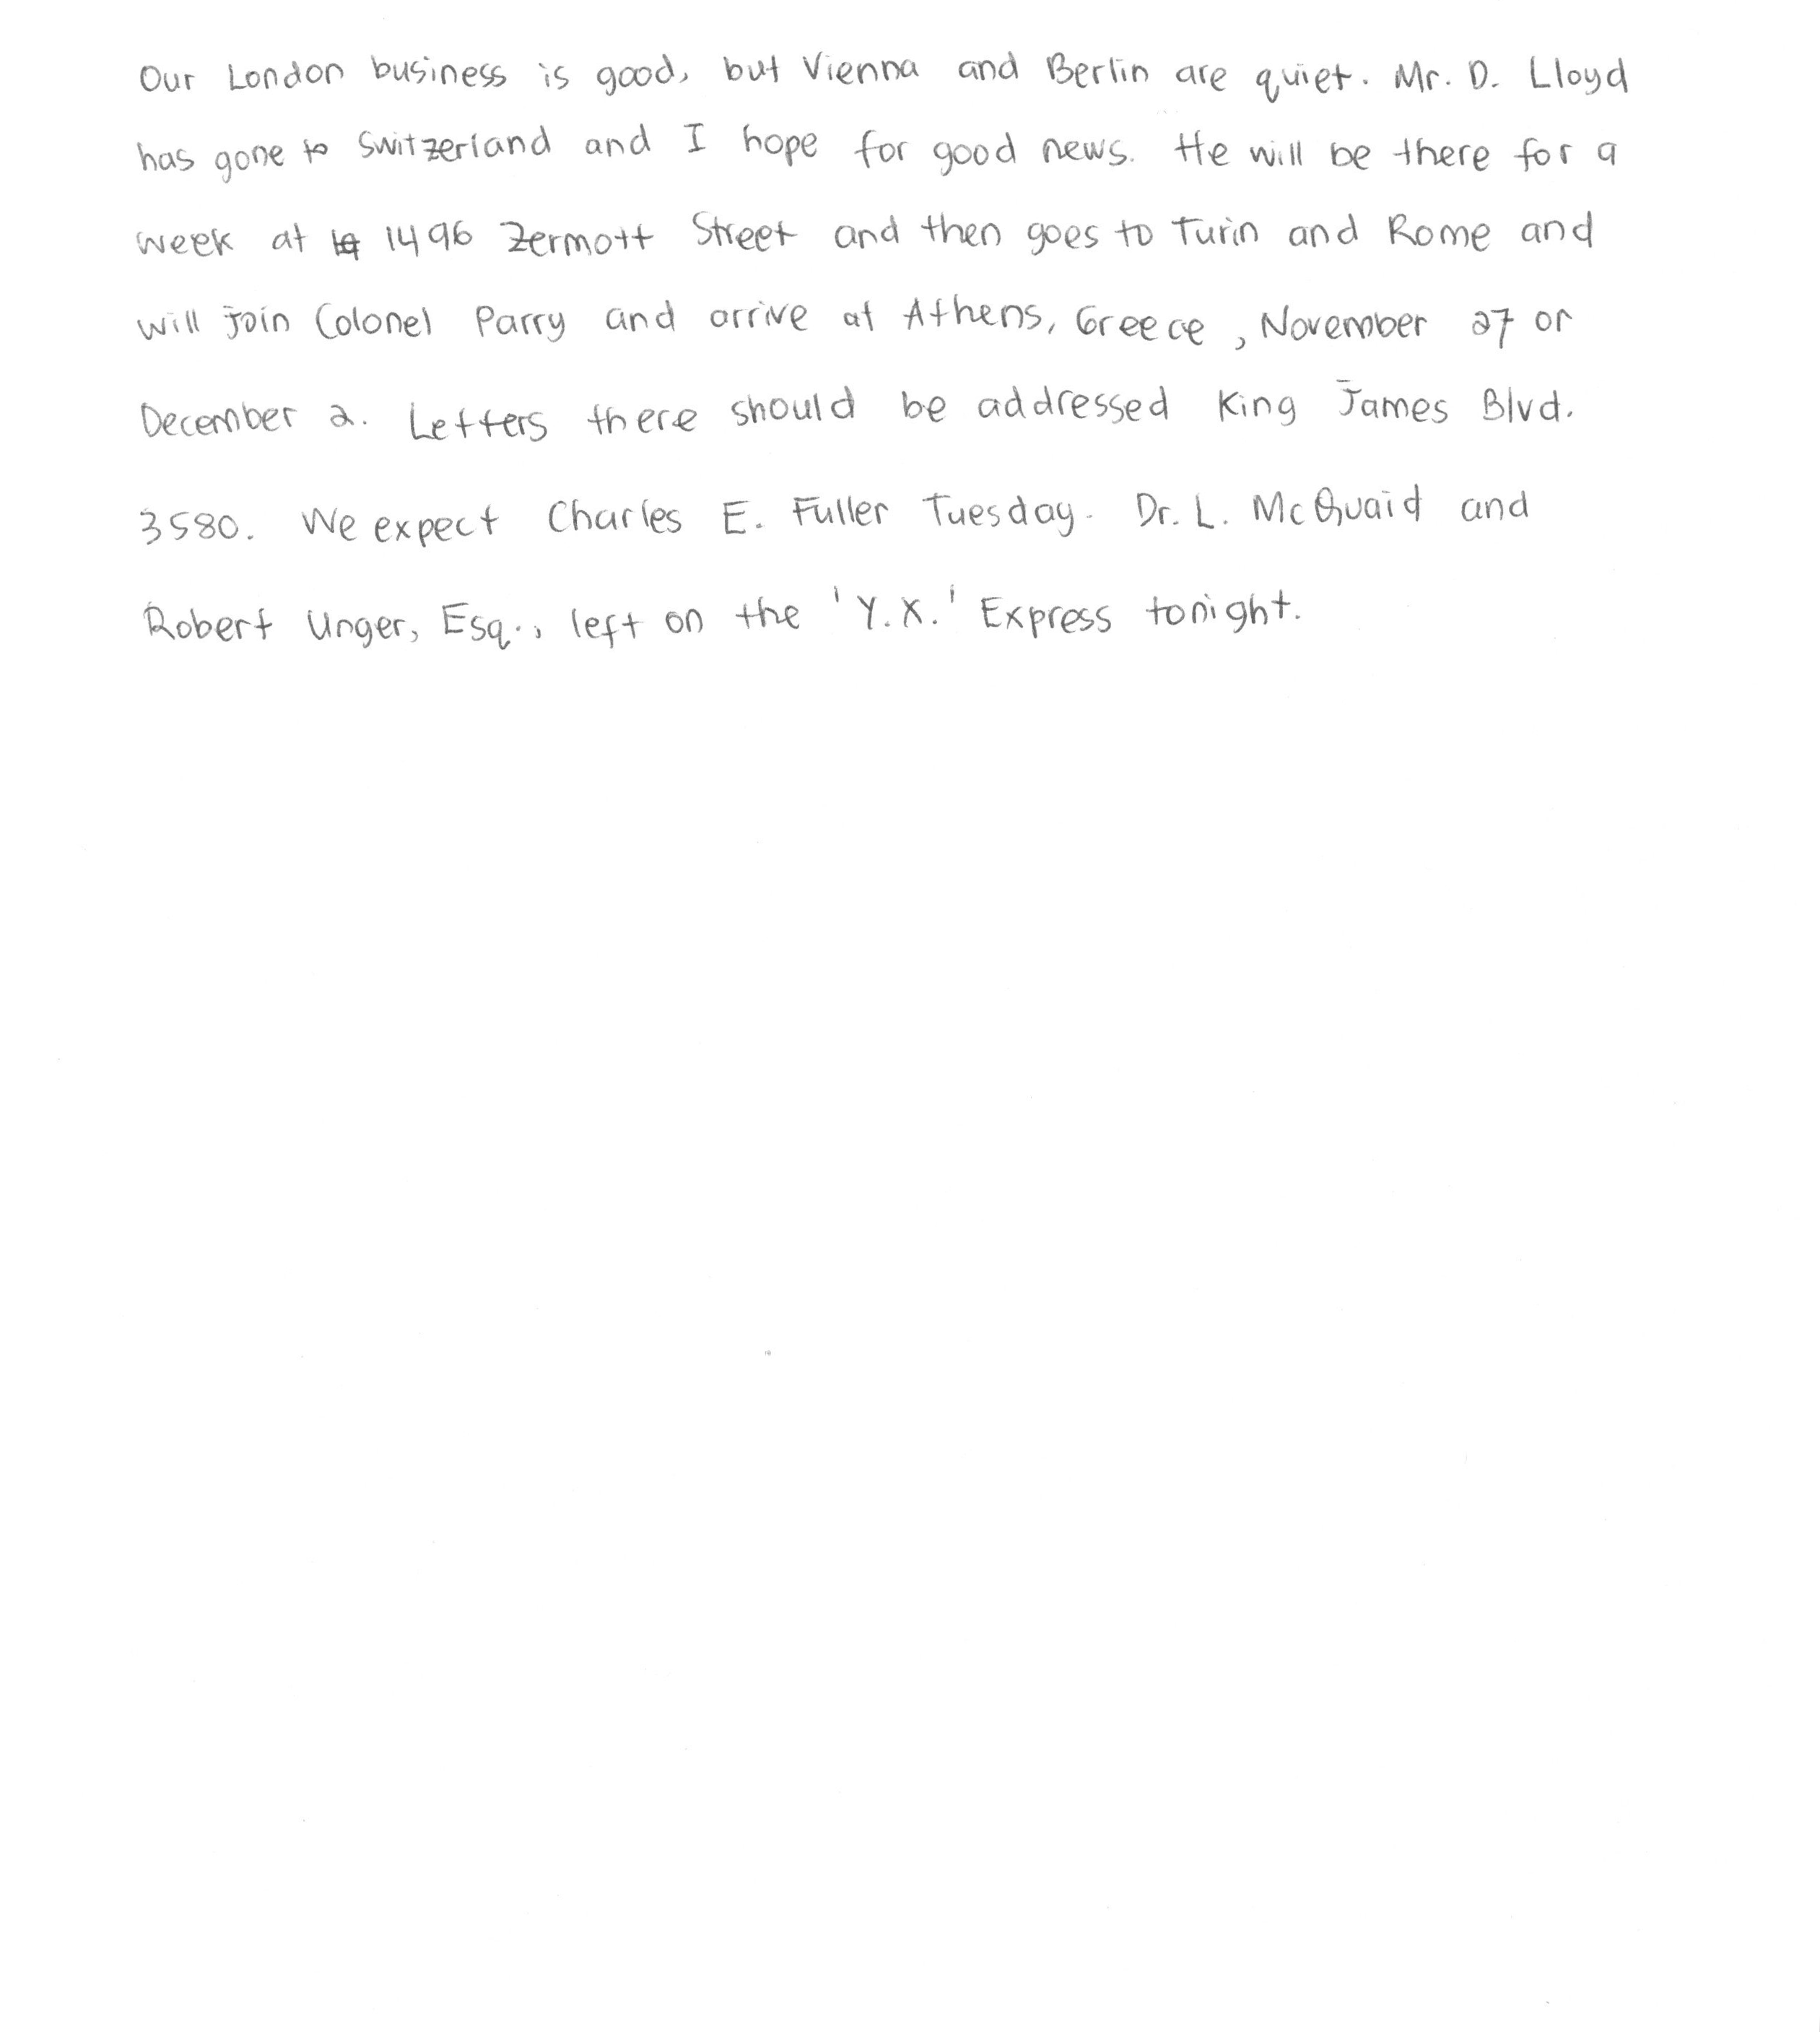 Our London business is good, but Vienna and Berlin are quiet. Mr. D. Lloyd
has gone to Switzerland and I hope for good news. He will be there for a
week at 1496 Zermott Street and then goes to Turin and Rome and
will join Colonel Parry and arrive at Athens, Greece, November 27 or
December 2. Letters there should be addressed King James Blvd.
3580. We expect Charles E. Fuller Tuesday. Dr. L. McQuaid and
Robert Unger, Esq., left on the 'Y.X.' Express tonight.